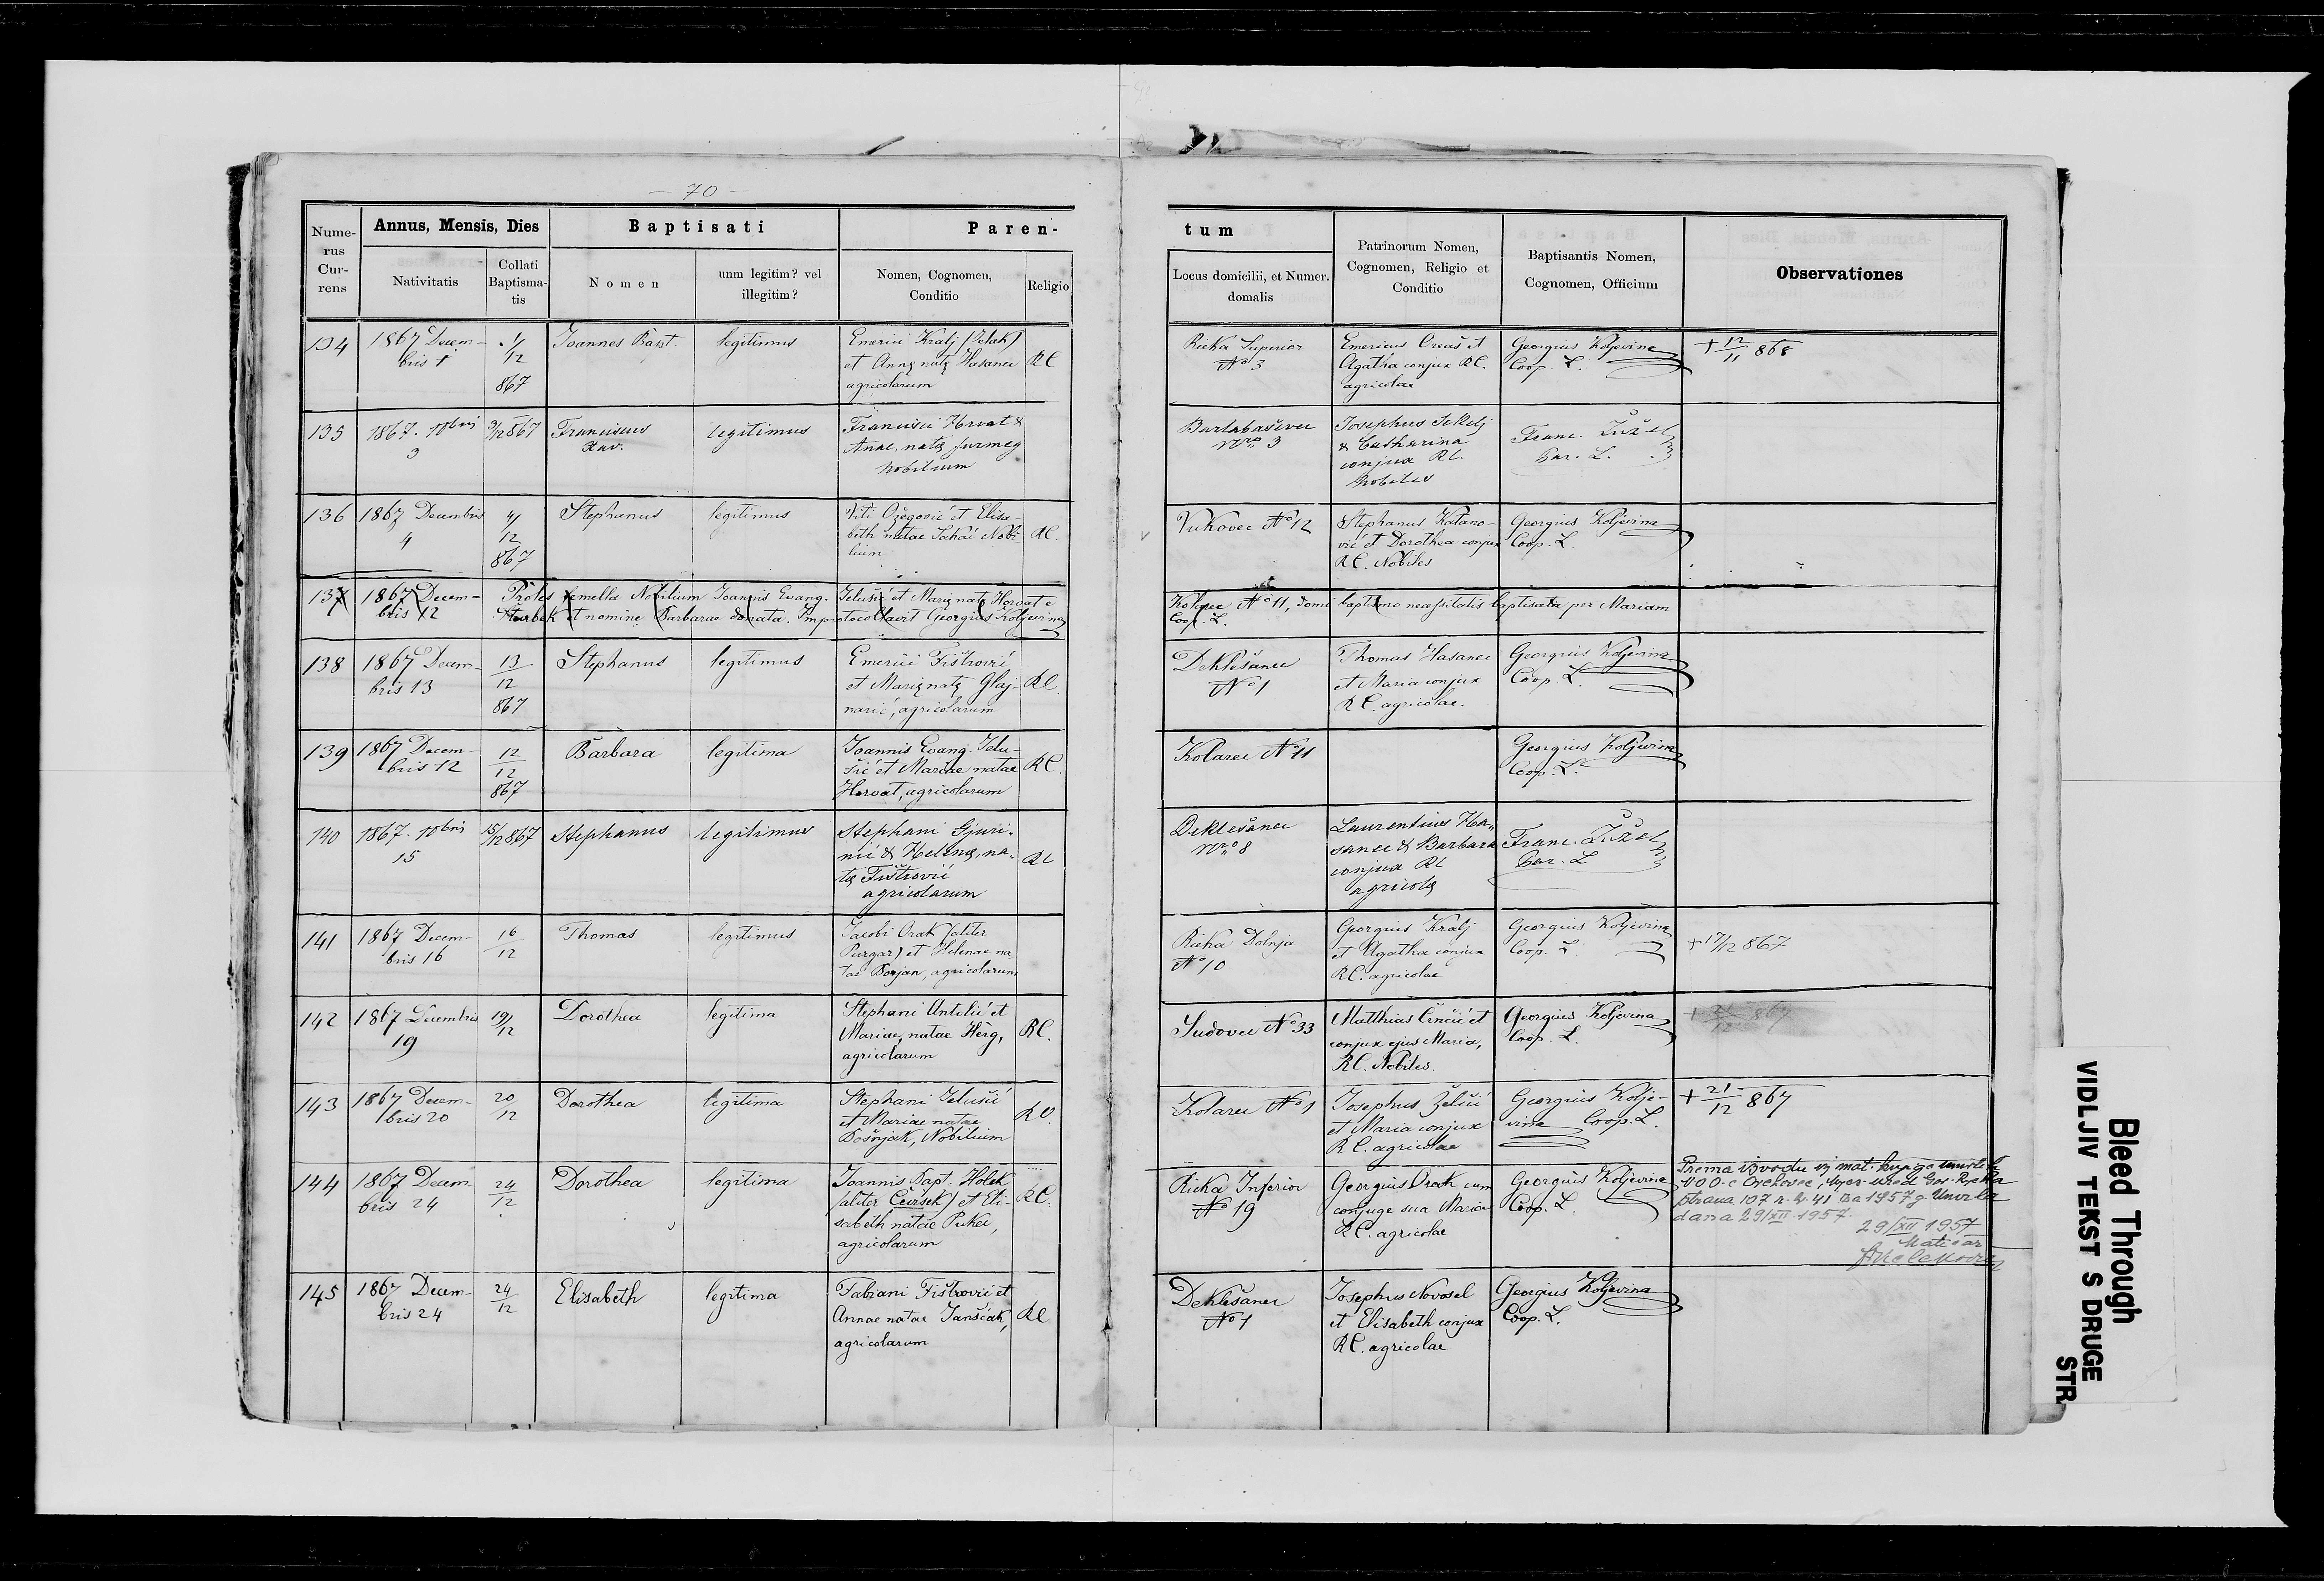 — 70 —
Nume-
rus
Cur-
rens
Annus, Mensis, Dies
Nativitatis
Collati
Baptisma-
tis
Baptisati
Nomen
unm legitim? vel
illegitim?
Paren-
Nomen, Cognomen,
Conditio
Religio
tum
Locus domicilii, et Numer.
domalis
Patrinorum Nomen,
Cognomen, Religio et
Conditio
Baptisantis Nomen,
Cognomen, Officium
Observationes
134
1867 Decem-
bris 1
1/
12
867
Joannes Bapt.
legitimus
Emerici Kralj
et Annę natę Hasanec
agricolarum
RC
Rieka Superior
No 3
Emericus et
Agatha conjux RC.
agricolae
Georgius Koljevina
Coop. L.
+ 12/11 868
135
1867. 10bris
3
3/12 867
Franciscus
Xav.
legitimus
Francisci Horvat &
Anae, natę
Nobilium
Nro 3
Josephus
& Catharina
conjux RC.
Nobiles
Franc. Žužel
Par. L.
136
1867 Decembris
4
4/
12
867
Stephanus
legitimus
Viti Ožegović et Elisa-
beth natae Nobi-
lium
RC.
Vukovec No 12
Stephanus Katano-
vić et Dorothea conjux
RC. Nobiles
Georgius Koljevina
Coop. L.
137
1867 Decem-
bris 12
Proles femella Nobilium Joannis Evang. Jelušić et Marię natę Horvat e
Kolarec No 11, domi baptismo necessitatis baptisata per Mariam
et nomine Barbarae donata. Improtocollavit Georgius Koljevina
Coop. L.
138
1867 Decem-
bris 13
13
12
867
Stephanus
legitimus
Emerici Fištrović
et Marię natę Glaj-
narić, agricolarum
RC.
Deklešanec
No 1
Thomas Hasanec
et Maria conjux
RC. agricolae.
Georgius Koljevina
Coop. L.
139
1867 Decem-
bris 12
12
12
867
Barbara
legitima
Joannis Evang. Jelu-
šić et Mariae natae
Horvat, agricolarum
RC.
Kolarec No 11
Georgius Koljevina
Coop. L.
140
1867. 10bris
15
15/12 867
Stephanus
legitimus
Stephani Gjuri-
nić & Helenę, na-
tę Fištrović
agricolarum
RC
Deklešanec
Nro 8
Laurentius Ha-
sanec & Barbara
conjux RC
agricolę
Franc. Žužel
Par. L
141
1867 Decem-
bris 16
16
12
Thomas
legitimus
Jacobi Orak (aliter
Purgar) et Helenae na
tae Borjan, agricolarum
Rieka Dolnja
No 10
Georgius Kralj
et Agatha conjux
RC. agricolae
Georgius Koljevina
Coop. L.
+ 17/12 867
142
1867 Decembris
19
19/
12
Dorothea
legitima
Stephani Antolić et
Mariae, natae Herg,
agricolarum
RC.
Sudovec No 33
Matthias Črnčić et
conjux ejus Maria,
RC. Nobiles.
Georgius Koljevina
Coop. L.
143
1867 Decem-
bris 20
20
12
Dorothea
legitima
Stephani Jelušić
et Mariae natae
Bošnjak, Nobilium
RC.
Kolarec No 1
Josephus Želići
et Maria conjux
RC. agricolae
Georgius Kolje-
vina Coop. L.
+ 21/12 867
144
1867 Decem
bris 24
24
12
Dorothea
legitima
Joannis Bapt. Holek
(aliter ) et Eli-
sabeth natae Pukec,
agricolarum
RC.
Rieka Inferior
No 19
Georgius Orak cum
conjuge sua Maria
RC. agricolae
Georgius Koljevina
Coop. L.
Prema izvodu iz mat. knjige umrlih
NOO-e Orehovec, Mjes. ured Gor. Rijeka
strana 107 r. b. 41 za 1957 g. Umrla
dana 29/XII 1957.
29/XII 1957
Matičar
145
1867 Decem-
bris 24
24
12
Elisabeth
legitima
Fabiani Fištrović et
Annae natae Janščak,
agricolarum
RC
Deklešanec
No 1
Josephus Novosel
et Elisabeth conjux
RC. agricolae
Georgius Koljevina
Coop. L.
Bleed Through
VIDLJIV TEKST S DRUGE
STR